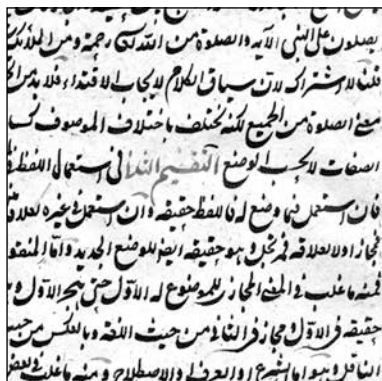 يصلون على النبي الآية والصلوة من الله تعالى رحمة ومن الملائكة
قلنا لا اشتراك لان سياق الكلام لايجاب الاقتداء فلا بد من اتحاد
معنى الصلوة من الجميع لكنه يختلف باختلاف الموصوف كسائر
الصفات لا بحسب الوضع التقسيم الثانى فى استعمال اللفظ فى
فان استعمل فيما وضع له فاللفظ حقيقة وان استعمل فى غيره لعلاقة
فمجاز او لا لعلاقة فمرتجل وهو حقيقة ايضا للوضع الجديد واما المنقول
فمنه ما غلب فى المعنى المجازى للموضوع له الاول حتى هجر الاول وهو
حقيقة فى الاول ومجاز فى الثانى من حيث اللغة وبالعكس من حيث
الناقل وهو اما الشرع او العرف او الاصطلاح ومنه ما غلب فى بعض